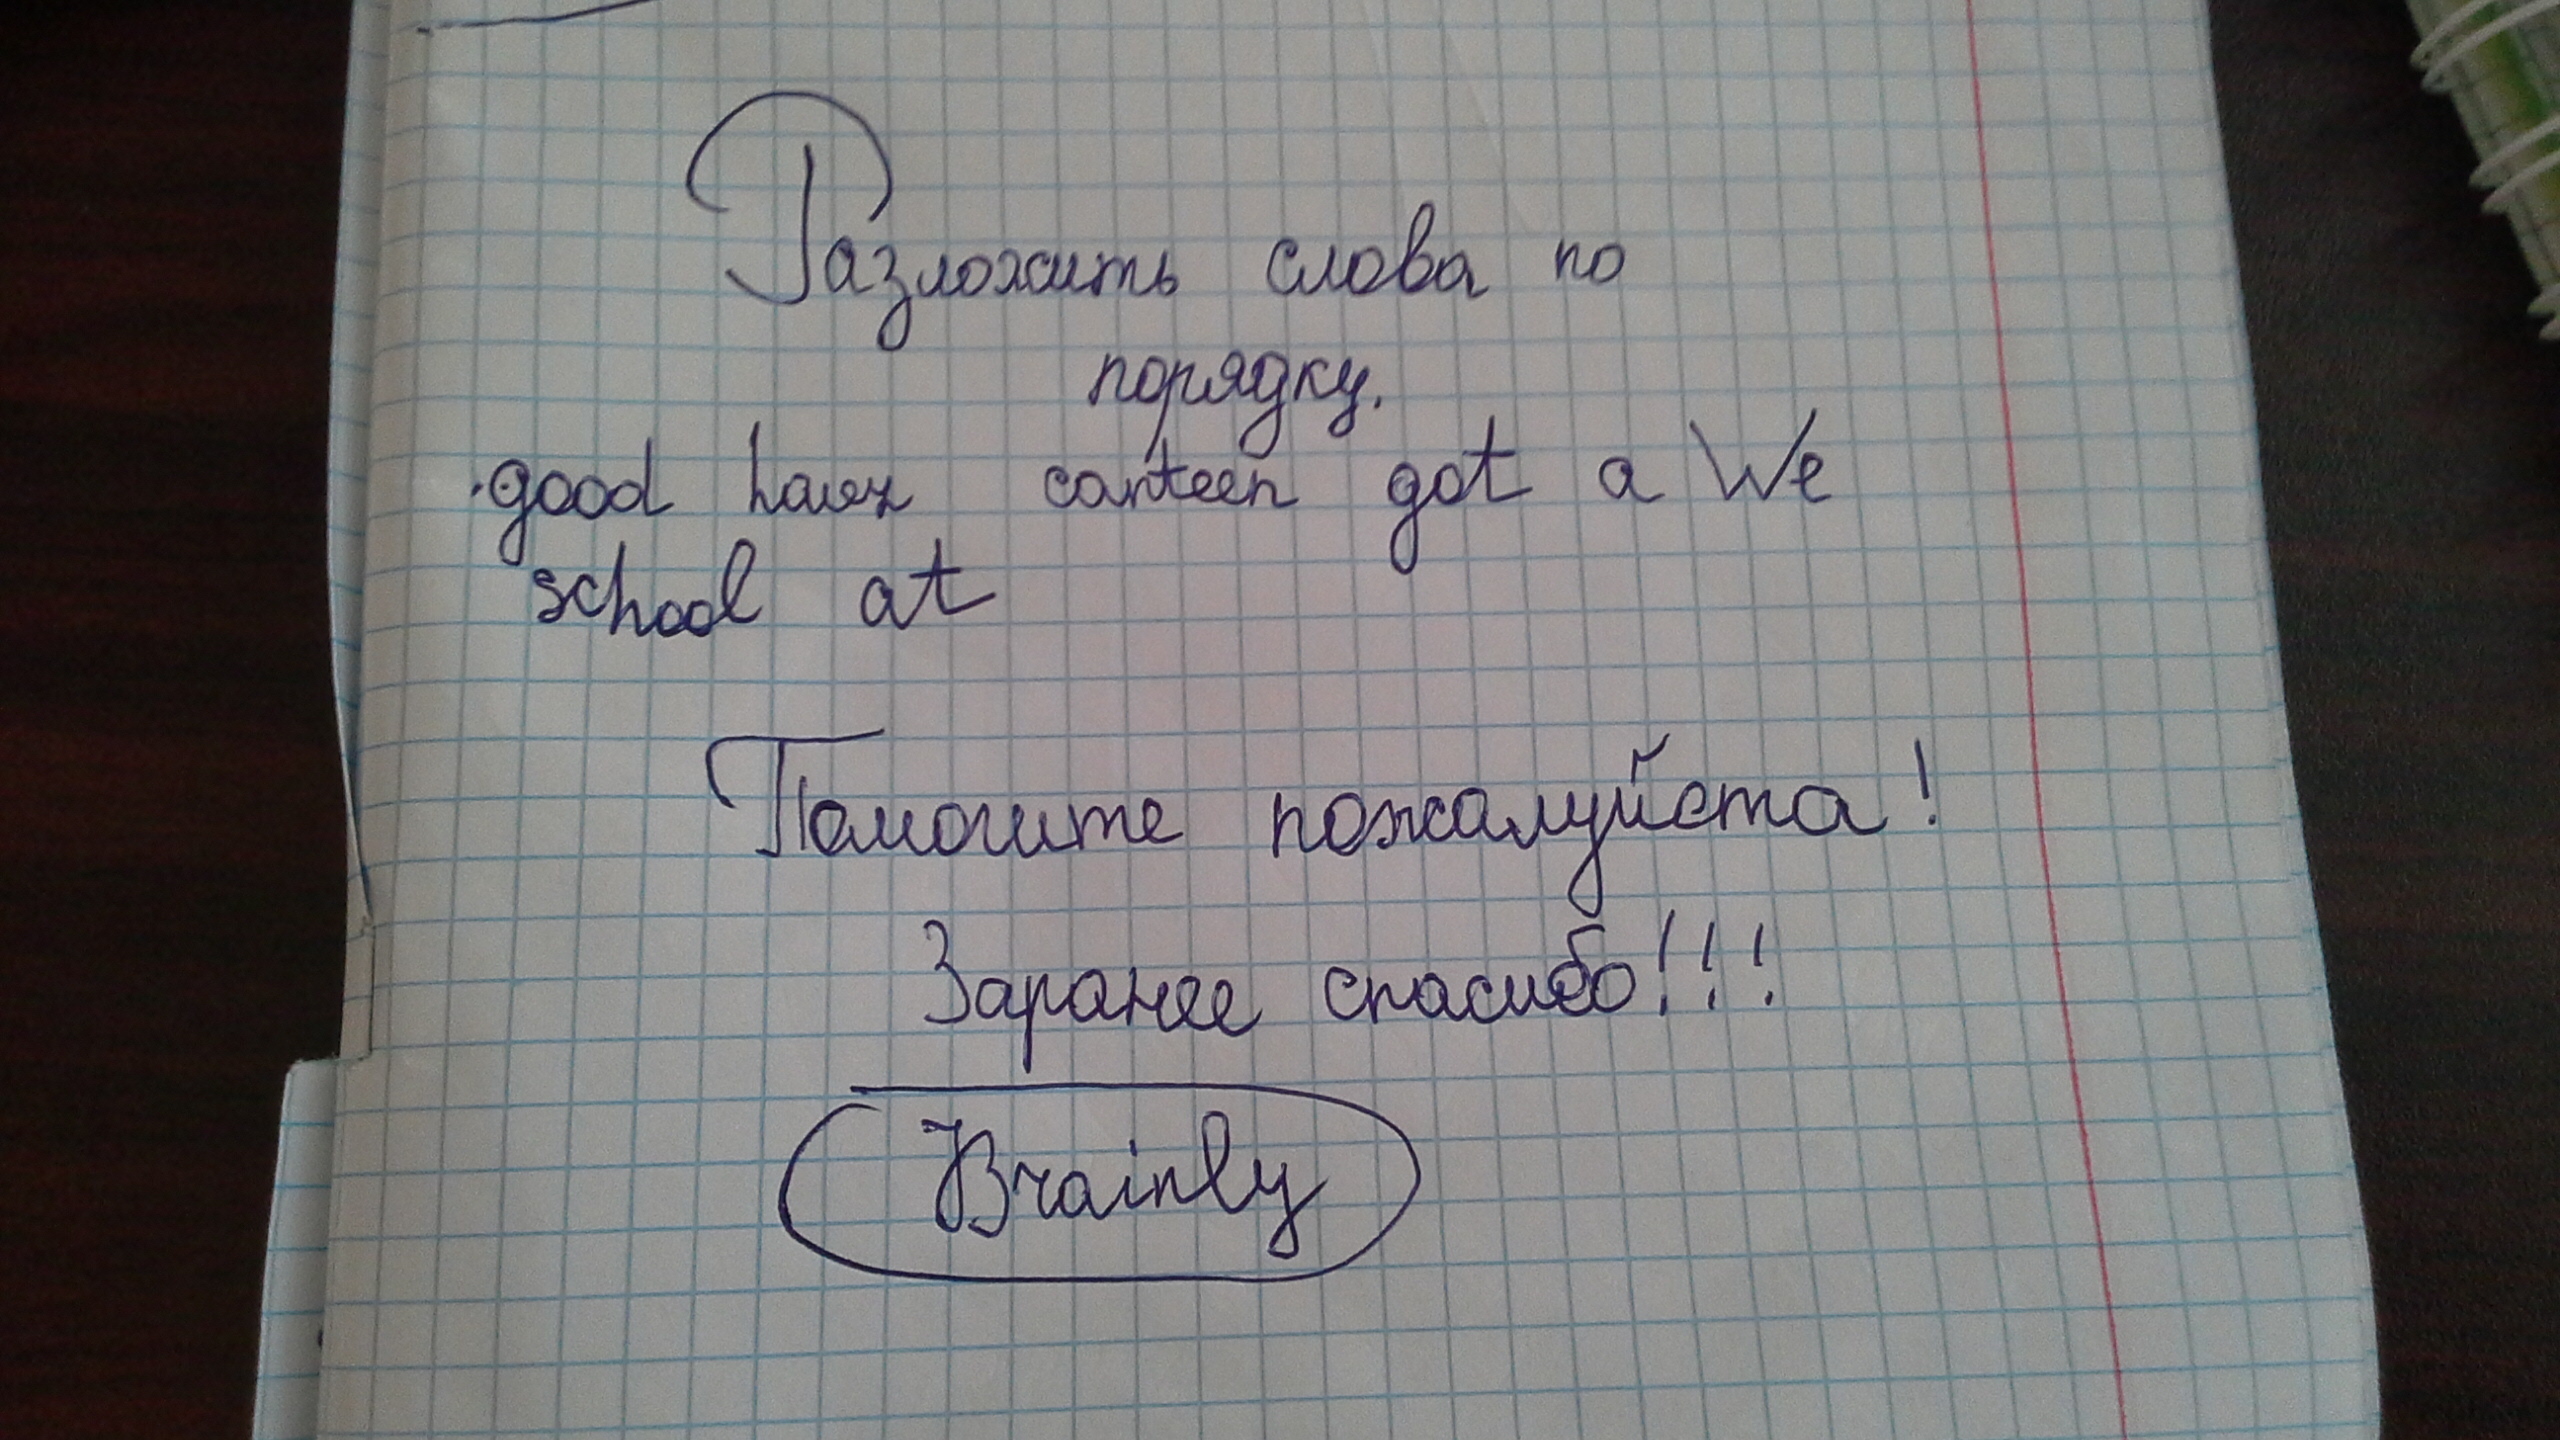 Разложить слова по
порядку.
.good have canteen got a We
school at
Помогите пожалуйста!
Заранее спасибо!!!
Brainly